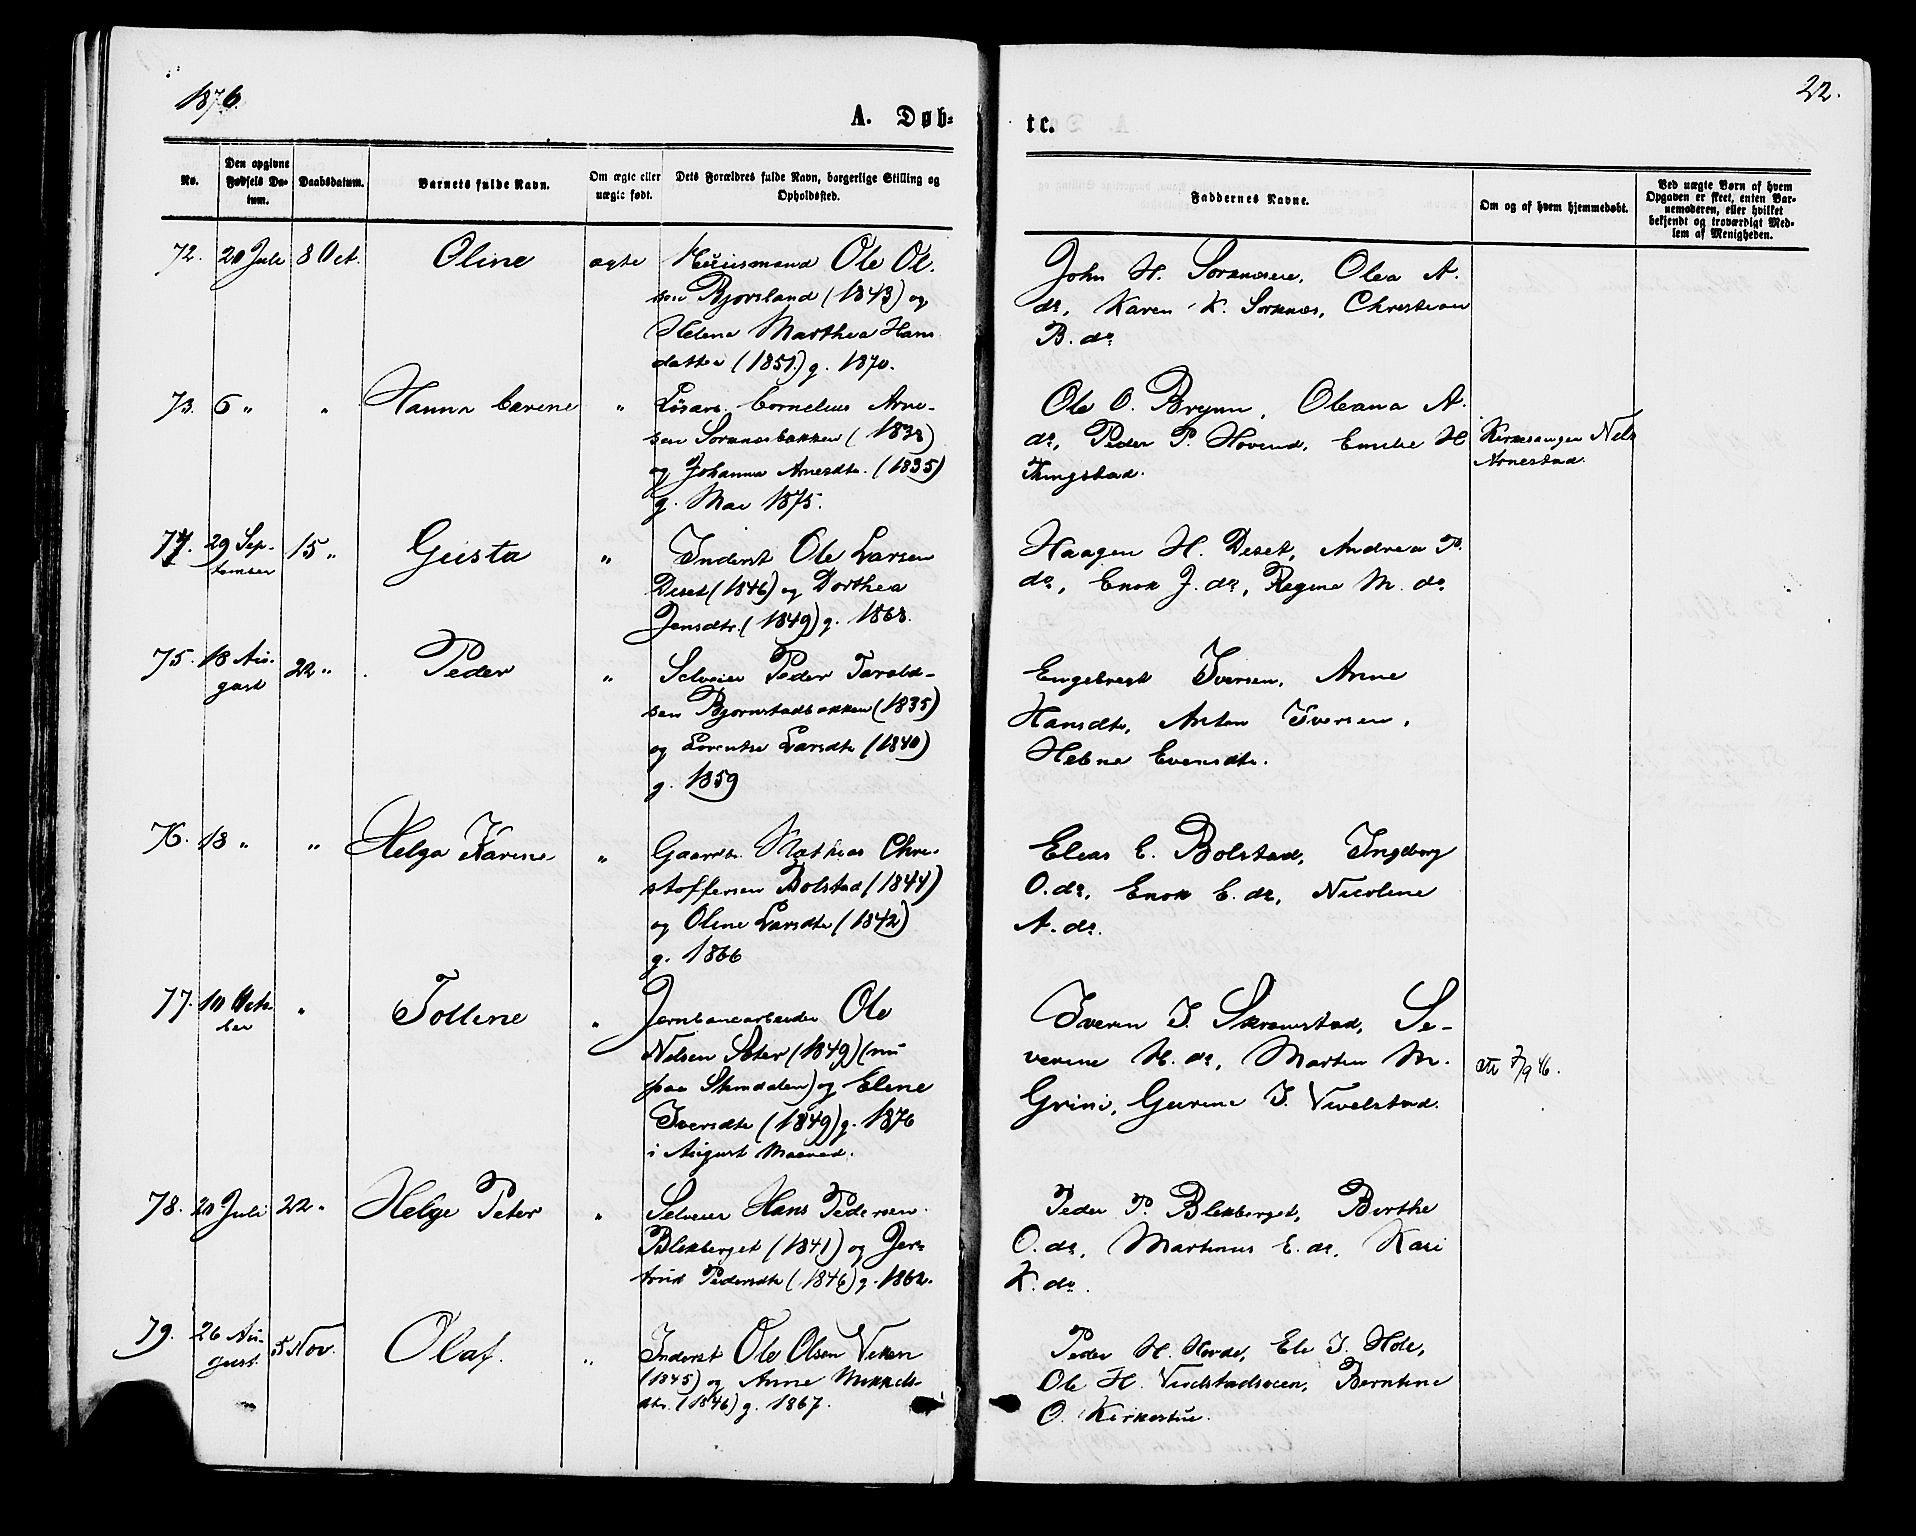 1876.
22.
A. Døb=
te.
No.
Den opgivne Fødsels Da-tum.
Daabsdatum.
Barnets fulde Navn.
Om ægte eller uægte født.
Dets Forældres fulde Navn, borgerlige Stilling og Opholdssted.
Faddernes Navne.
Om og af hvem hjemmedøbt.
Ved uægte Børn af hvem Opgaven er skeet, enten Bar-nemoderen, eller hvilket bekjendt og troværdigt Med-lem af Menigheden.
72. 20 Juli 8 Oct. Oline ægte
Huusmand Ole Ol-
sen Bjørsland (1843) og
Helena Marthea Hans
datter (1851) g. 1870.
John H. Sorknæseie, Olea A.
do, Karen K. Sorknæs, Christian
B. do
73. 6 " " Hanna Carene "
Løsarb. Cornelius Arne-
sen Sorknæsbakken (1838)
og Johanna Arnesdtr. (1835)
g. Mai 1875.
Ole O. Brynn, Oleana A.
do, Peder P. Hovend, Emilie H
Tingstad.
Kirkesanger Nels
Arnestad.
74. 29 Sep-
tember 15 " Gusta "
Inderst Ole Larsen
Deset (1846) og Dorthea
Jensdtr. (1849) g. 1868.
Haagen H. Deset, Andrea P.
do, Enok J. do, Regine M. do
75. 18 Au-
gust 22 " Peder "
Selveier Peder Tarald-
sen Bjørnstadbakken (1835)
og Lorentse Larsdtr (1840)
g. 1859
Engebregt Iversen, Arne
Hansdtr, Anton Iversen,
Helene Evensdtr.
76. 18 " " Helga Karine "
Gaardbr. Mathias Chri-
stoffersen Bolstad (1844)
og Oline Larsdtr (1842)
g. 1866
Elias E. Bolstad, Ingeborg
O. do, Enok E. do, Nicoline
A. do.
77. 10 Octo-
ber " Tolline "
Jernbanearbeider Ole
Nelsen Sæter (1849) (nu
paa Stendalen) og Eline
Iversdtr (1849) g. 1876
i August Maaned.
Iveren I. Skramstad, Se-
verine H. do, Martin M.
Grini, Gurine I. Vivelstad.
att 7/9 46.
78. 20 Juli 22 " Helge Peter "
Selveier Hans Pedersen
Blekberget (1841) og Jer-
trud Pedersdtr (1846) g. 1862.
Peder P. Blekberget, Berthe
O. do, Martinus E. do, Kari
K. do.
79. 26 Au-
gust. 5 Nov. Olaf. "
Inderst Ole Olsen Veken
(1845) og Anne Mikkels-
dtr. (1846) g. 1867.
Peder H. Horde, Eli I. Hole,
Ole H. Vivelstadsveen, Berntine
O. Kirkestue.